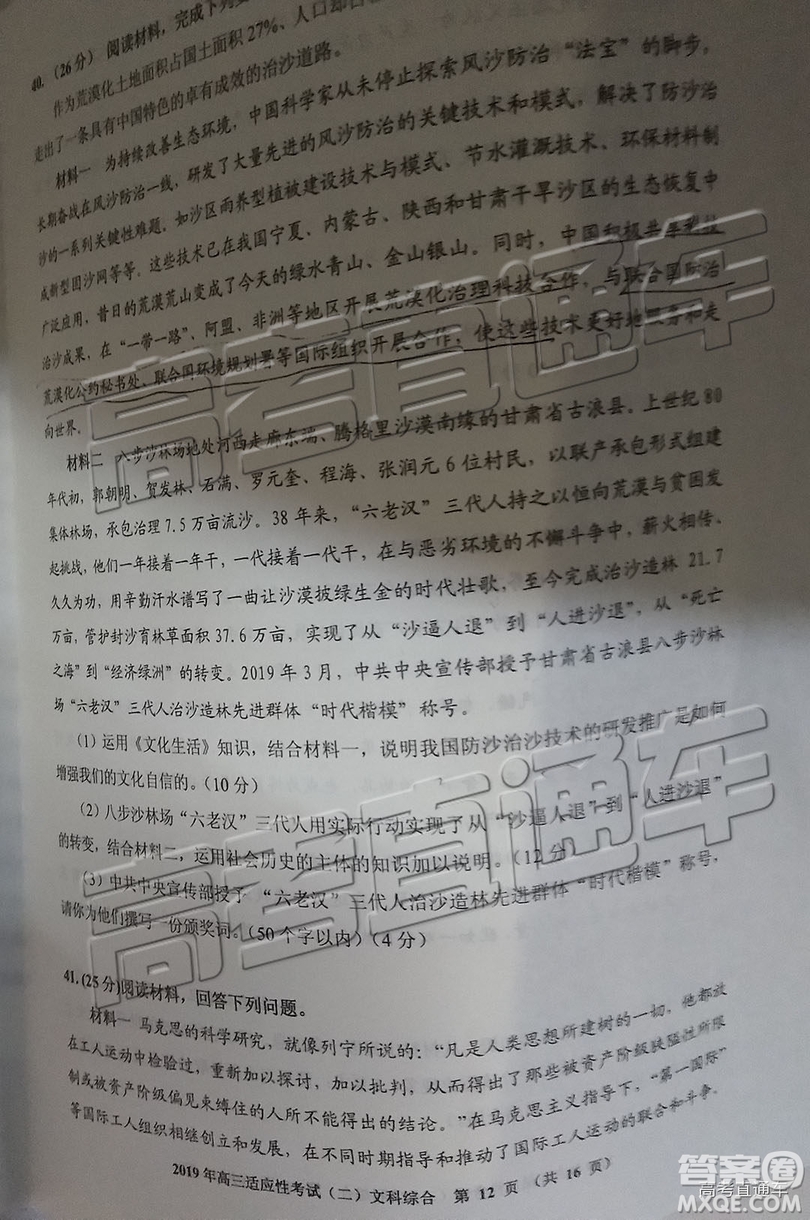 40.（26分）阅读材料，完成下列
作为荒漠化土地面积占国土面积27%、人口
走出了一条具有中国特色的卓有成效的治沙道路。
材料一 为持续改善生态环境，中国科学家从未停止探索风沙防治“法宝”的脚步，
长期奋战在风沙防治一线，研发了大量先进的风沙防治的关键技术和模式，解决了防沙治
沙的一系列关键性难题，如沙区雨养型植被建设技术与模式、节水灌溉技术、环保材料制
成新型固沙网等等，这些技术已在我国宁夏、内蒙古、陕西和甘肃干旱沙区的生态恢复中
广泛应用，昔日的荒漠荒山变成了今天的绿水青山、金山银山。同时，中国积极共享科技
治沙成果，在“一带一路”、阿盟、非洲等地区开展荒漠化治理科技合作，与联合国防治
荒漠化公约秘书处、联合国环境规划署等国际组织开展合作，使这些技术更好地服务和走
向世界。
材料二 八步沙林场地处河西走廊东端、腾格里沙漠南缘的甘肃省古浪县。上世纪80
年代初，郭朝明、贺发林、石满、罗元奎、程海、张润元6位村民，以联产承包形式组建
集体林场，承包治理7.5万亩流沙。38年来，“六老汉”三代人持之以恒向荒漠与贫困发
起挑战，他们一年接着一年干，一代接着一代干，在与恶劣环境的不懈斗争中，薪火相传、
久久为功，用辛勤汗水谱写了一曲让沙漠披绿生金的时代壮歌，至今完成治沙造林21.7
万亩，管护封沙育林草面积37.6万亩，实现了从“沙逼人退”到“人进沙退”，从“死亡
之海”到“经济绿洲”的转变。2019年3月，中共中央宣传部授予甘肃省古浪县八步沙林
场“六老汉”三代人治沙造林先进群体“时代楷模”称号。
（1）运用《文化生活》知识，结合材料一，说明我国防沙治沙技术的研发推广是如何
增强我们的文化自信的。（10分）
（2）八步沙林场“六老汉”三代人用实际行动实现了从“沙逼人退”到“人进沙退”
的转变，结合材料二，运用社会历史的主体的知识加以说明。（12分）
（3）中共中央宣传部授予“六老汉”三代人治沙造林先进群体“时代楷模”称号，
请你为他们撰写一份颁奖词。（50个字以内）（4分）
41.(25分)阅读材料，回答下列问题。
材料一 马克思的科学研究，就像列宁所说的：“凡是人类思想所建树的一切，他都放
在工人运动中检验过，重新加以探讨，加以批判，从而得出了那些被资产阶级狭隘性所限
制或被资产阶级偏见束缚住的人所不能得出的结论。”在马克思主义指导下，“第一国际”
等国际工人组织相继创立和发展，在不同时期指导和推动了国际工人运动的联合和斗争。
2019年高三适应性考试（二）文科综合 第12页（共16页）
高考直通车
高考直通车
答案圈
高考直通车
MXQE.COM